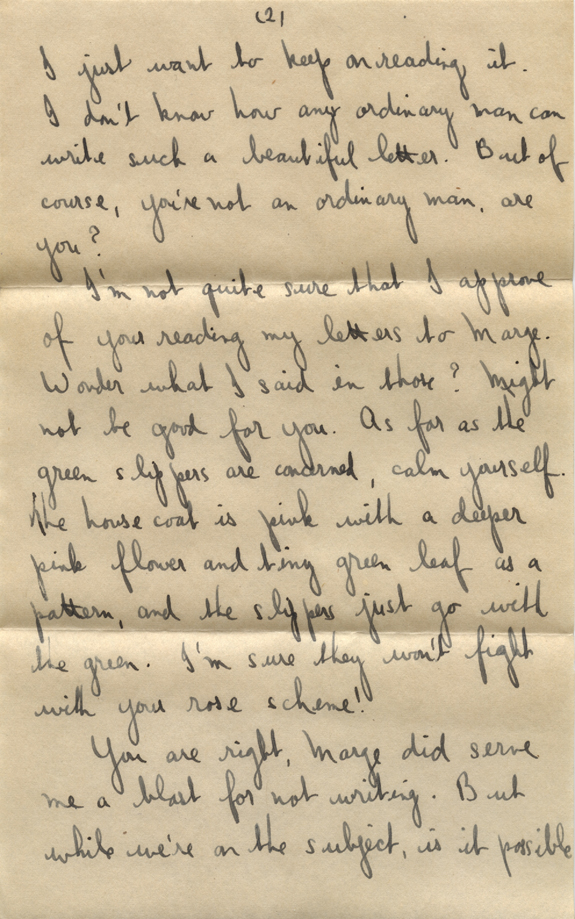 (2)
I just want to keep on reading it.
I don't know how any ordinary man can
write such a beautiful letter. But of
course, you're not an ordinary man, are
you?
I'm not quite sure that I approve
of your reading my letters to Marge.
Wonder what I said in those? Might
not be good for you. As far as the
green slippers are concerned, calm yourself.
The house coat is pink with a deeper
pink flower and tiny green leaf as a
pattern, and the slippers just go with
the green. I'm sure they won't fight
with your rose scheme!
You are right, Marge did serve
me a blast for not writing. But
while we're on the subject, is it possible